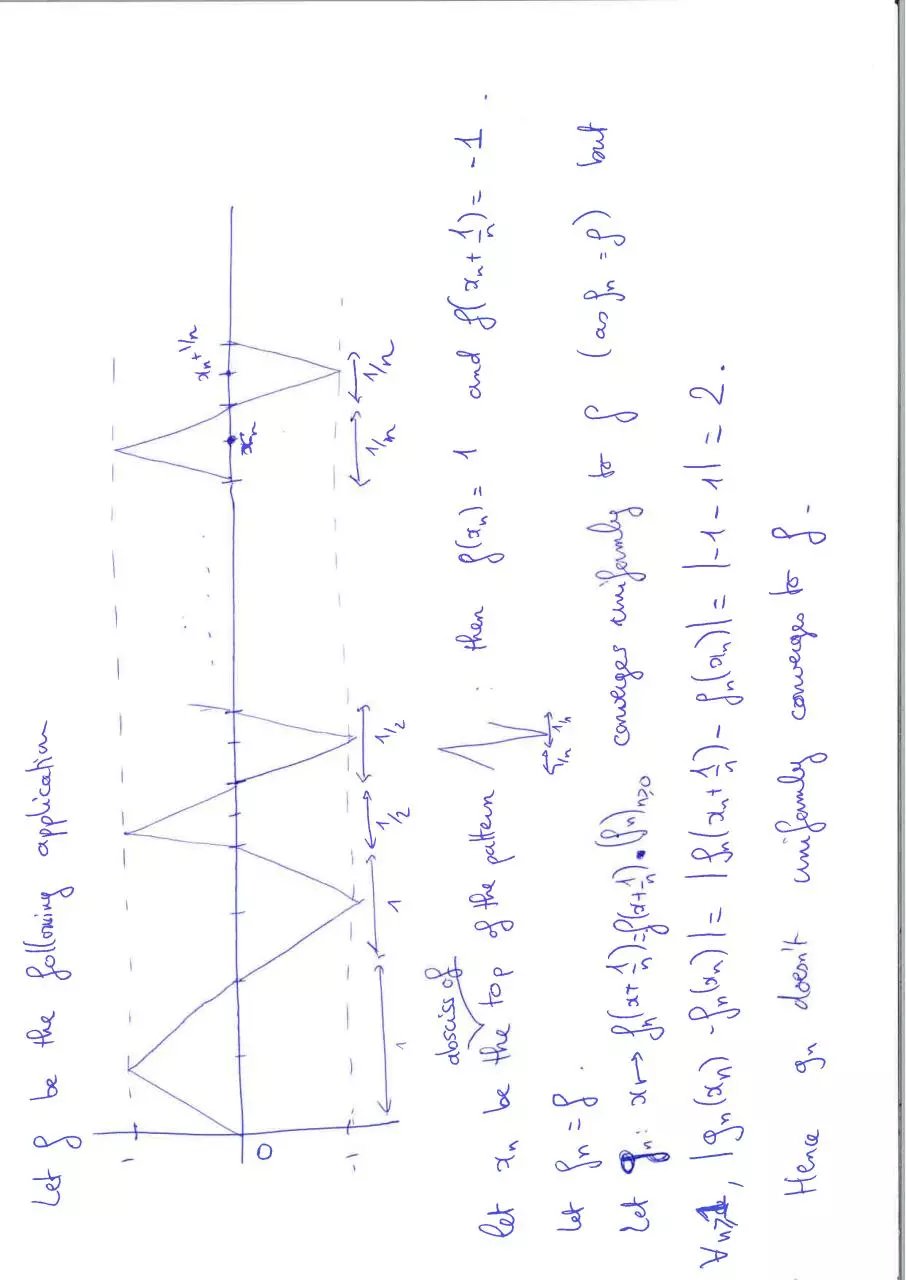 Let f be the following application
1
0
-1
1
1
1/2
1/2
xn
xn+1/n
1/n
1/n
absciss of
Let xn be the top of the pattern
1/n 1/n
: then f(xn) = 1 and f(xn + 1/n) = -1.
Let fn = f.
Let gn: x ↦ fn(x + 1/n) = f(x + 1/n). (fn)n≥0 converges uniformly to f (as fn = f) but
∀n≥1, |gn(xn) - fn(xn)| = |fn(xn + 1/n) - fn(xn)| = |-1 - 1| = 2.
Hence gn doesn't uniformly converges to f.